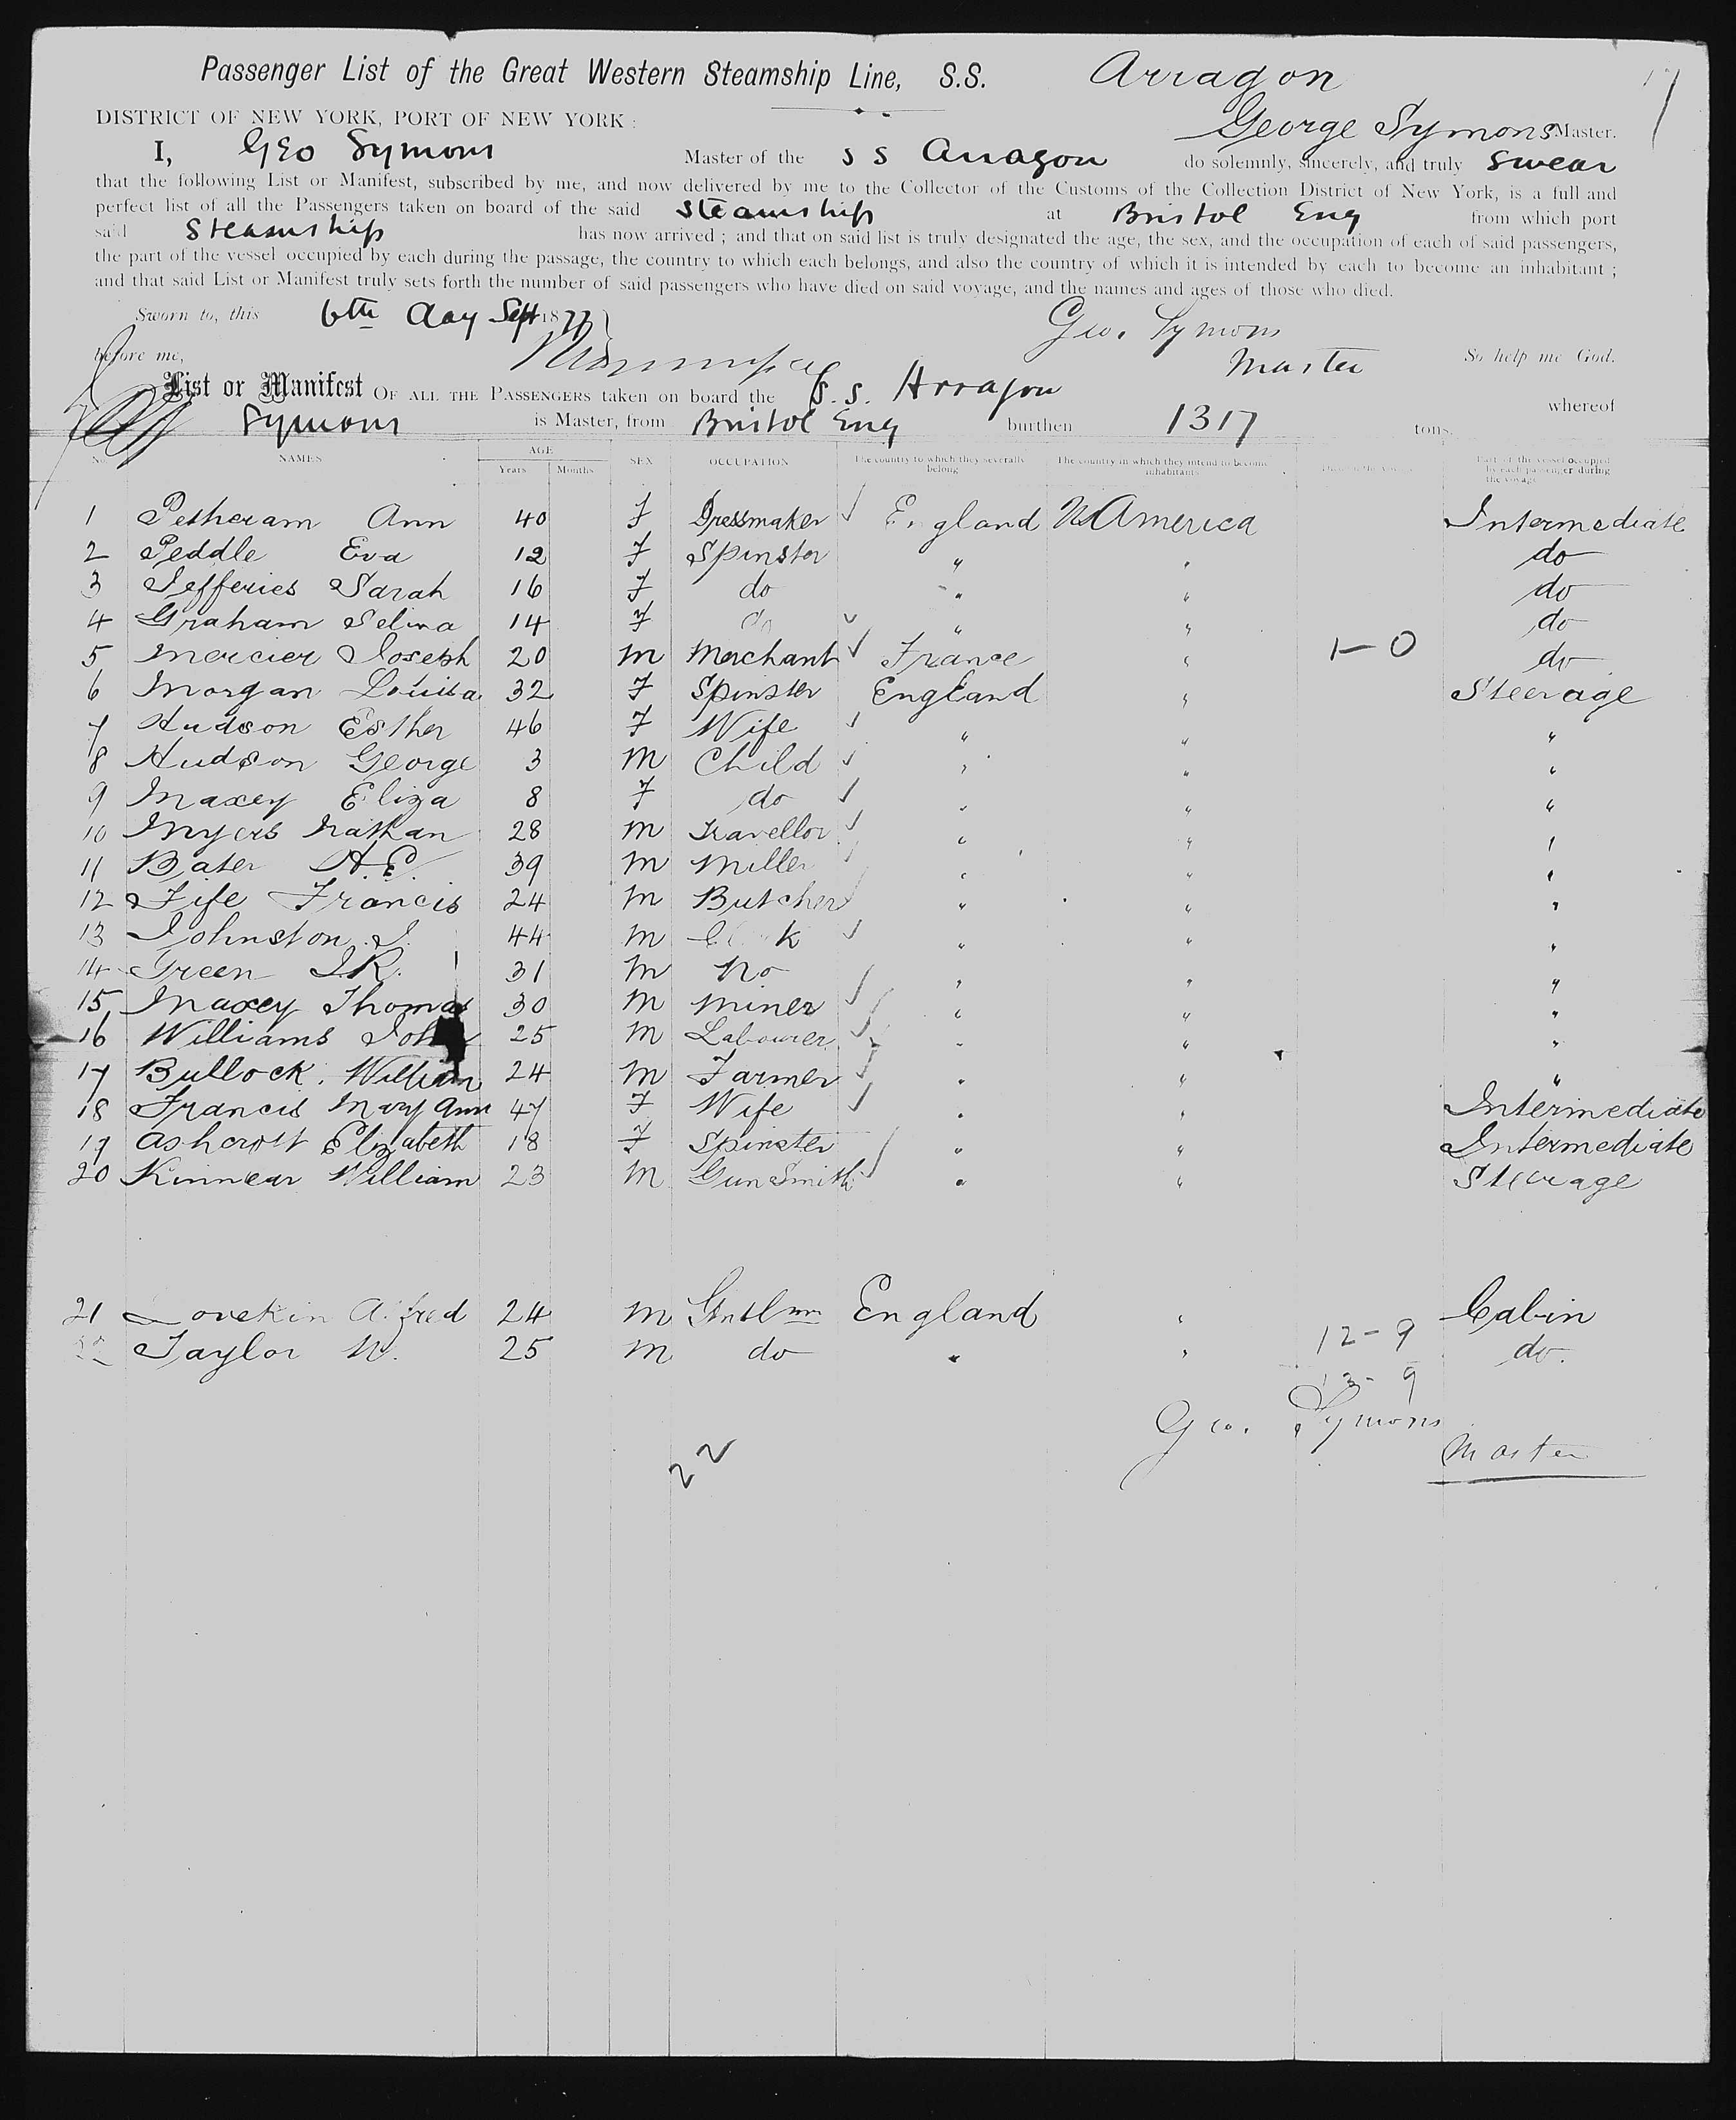 Passenger List of the Great Western Steamship Line, S.S. Arragon
17
DISTRICT OF NEW YORK, PORT OF NEW YORK: George Symons Master.
I, Geo Symons Master of the S S Arragon do solemnly, sincerely, and truly swear
that the following List or Manifest, subscribed by me, and now delivered by me to the Collector of the Customs of the Collection District of New York, is a full and
perfect list of all the Passengers taken on board of the said Steamship at Bristol Eng from which port
said Steamship has now arrived; and that on said list is truly designated the age, the sex, and the occupation of each of said passengers,
the part of the vessel occupied by each during the passage, the country to which each belongs, and also the country of which it is intended by each to become an inhabitant;
and that said List or Manifest truly sets forth the number of said passengers who have died on said voyage, and the names and ages of those who died.
Sworn to, this 6th day Sept 1877 Geo. Symons
before me, Master So help me God.
List or Manifest OF ALL THE PASSENGERS taken on board the S.S. Arragon whereof
Symons is Master, from Bristol Eng burthen 1317 tons.
No. NAMES AGE Years Months SEX OCCUPATION The country to which they severally belong The country in which they intend to become inhabitants Died on the voyage Part of the vessel occupied by each passenger during the voyage
1 Petheram Ann 40 F Dressmaker England N America Intermediate
2 Peddle Eva 12 F Spinster " " do
3 Jefferies Sarah 16 F do " " do
4 Graham Selina 14 F do " " do
5 Mercier Joseph 20 M Merchant France " 1-0 do
6 Morgan Louisa 32 F Spinster England " Steerage
7 Hudson Esther 46 F Wife " " "
8 Hudson George 3 M Child " " "
9 Maxey Eliza 8 F do " " "
10 Myers Nathan 28 M Travellor " " "
11 Bater H.E. 39 M Miller " " "
12 Fife Francis 24 M Butcher " " "
13 Johnston J. 44 M " " "
14 Green J.R. 31 M No " " "
15 Maxey Thomas 30 M Miner " " "
16 Williams John 25 M Labourer " " "
17 Bullock William 24 M Farmer " " "
18 Francis Mary Ann 47 F Wife " " Intermediate
19 Ashcroft Elizabeth 18 F Spinster " " Intermediate
20 Kinnear William 23 M GunSmith " " Steerage
21 Lovekin Alfred 24 M Gentlmn England " Cabin
22 Taylor W. 25 M do " " 12-9 do.
13-9
Geo. Symons
Master
22